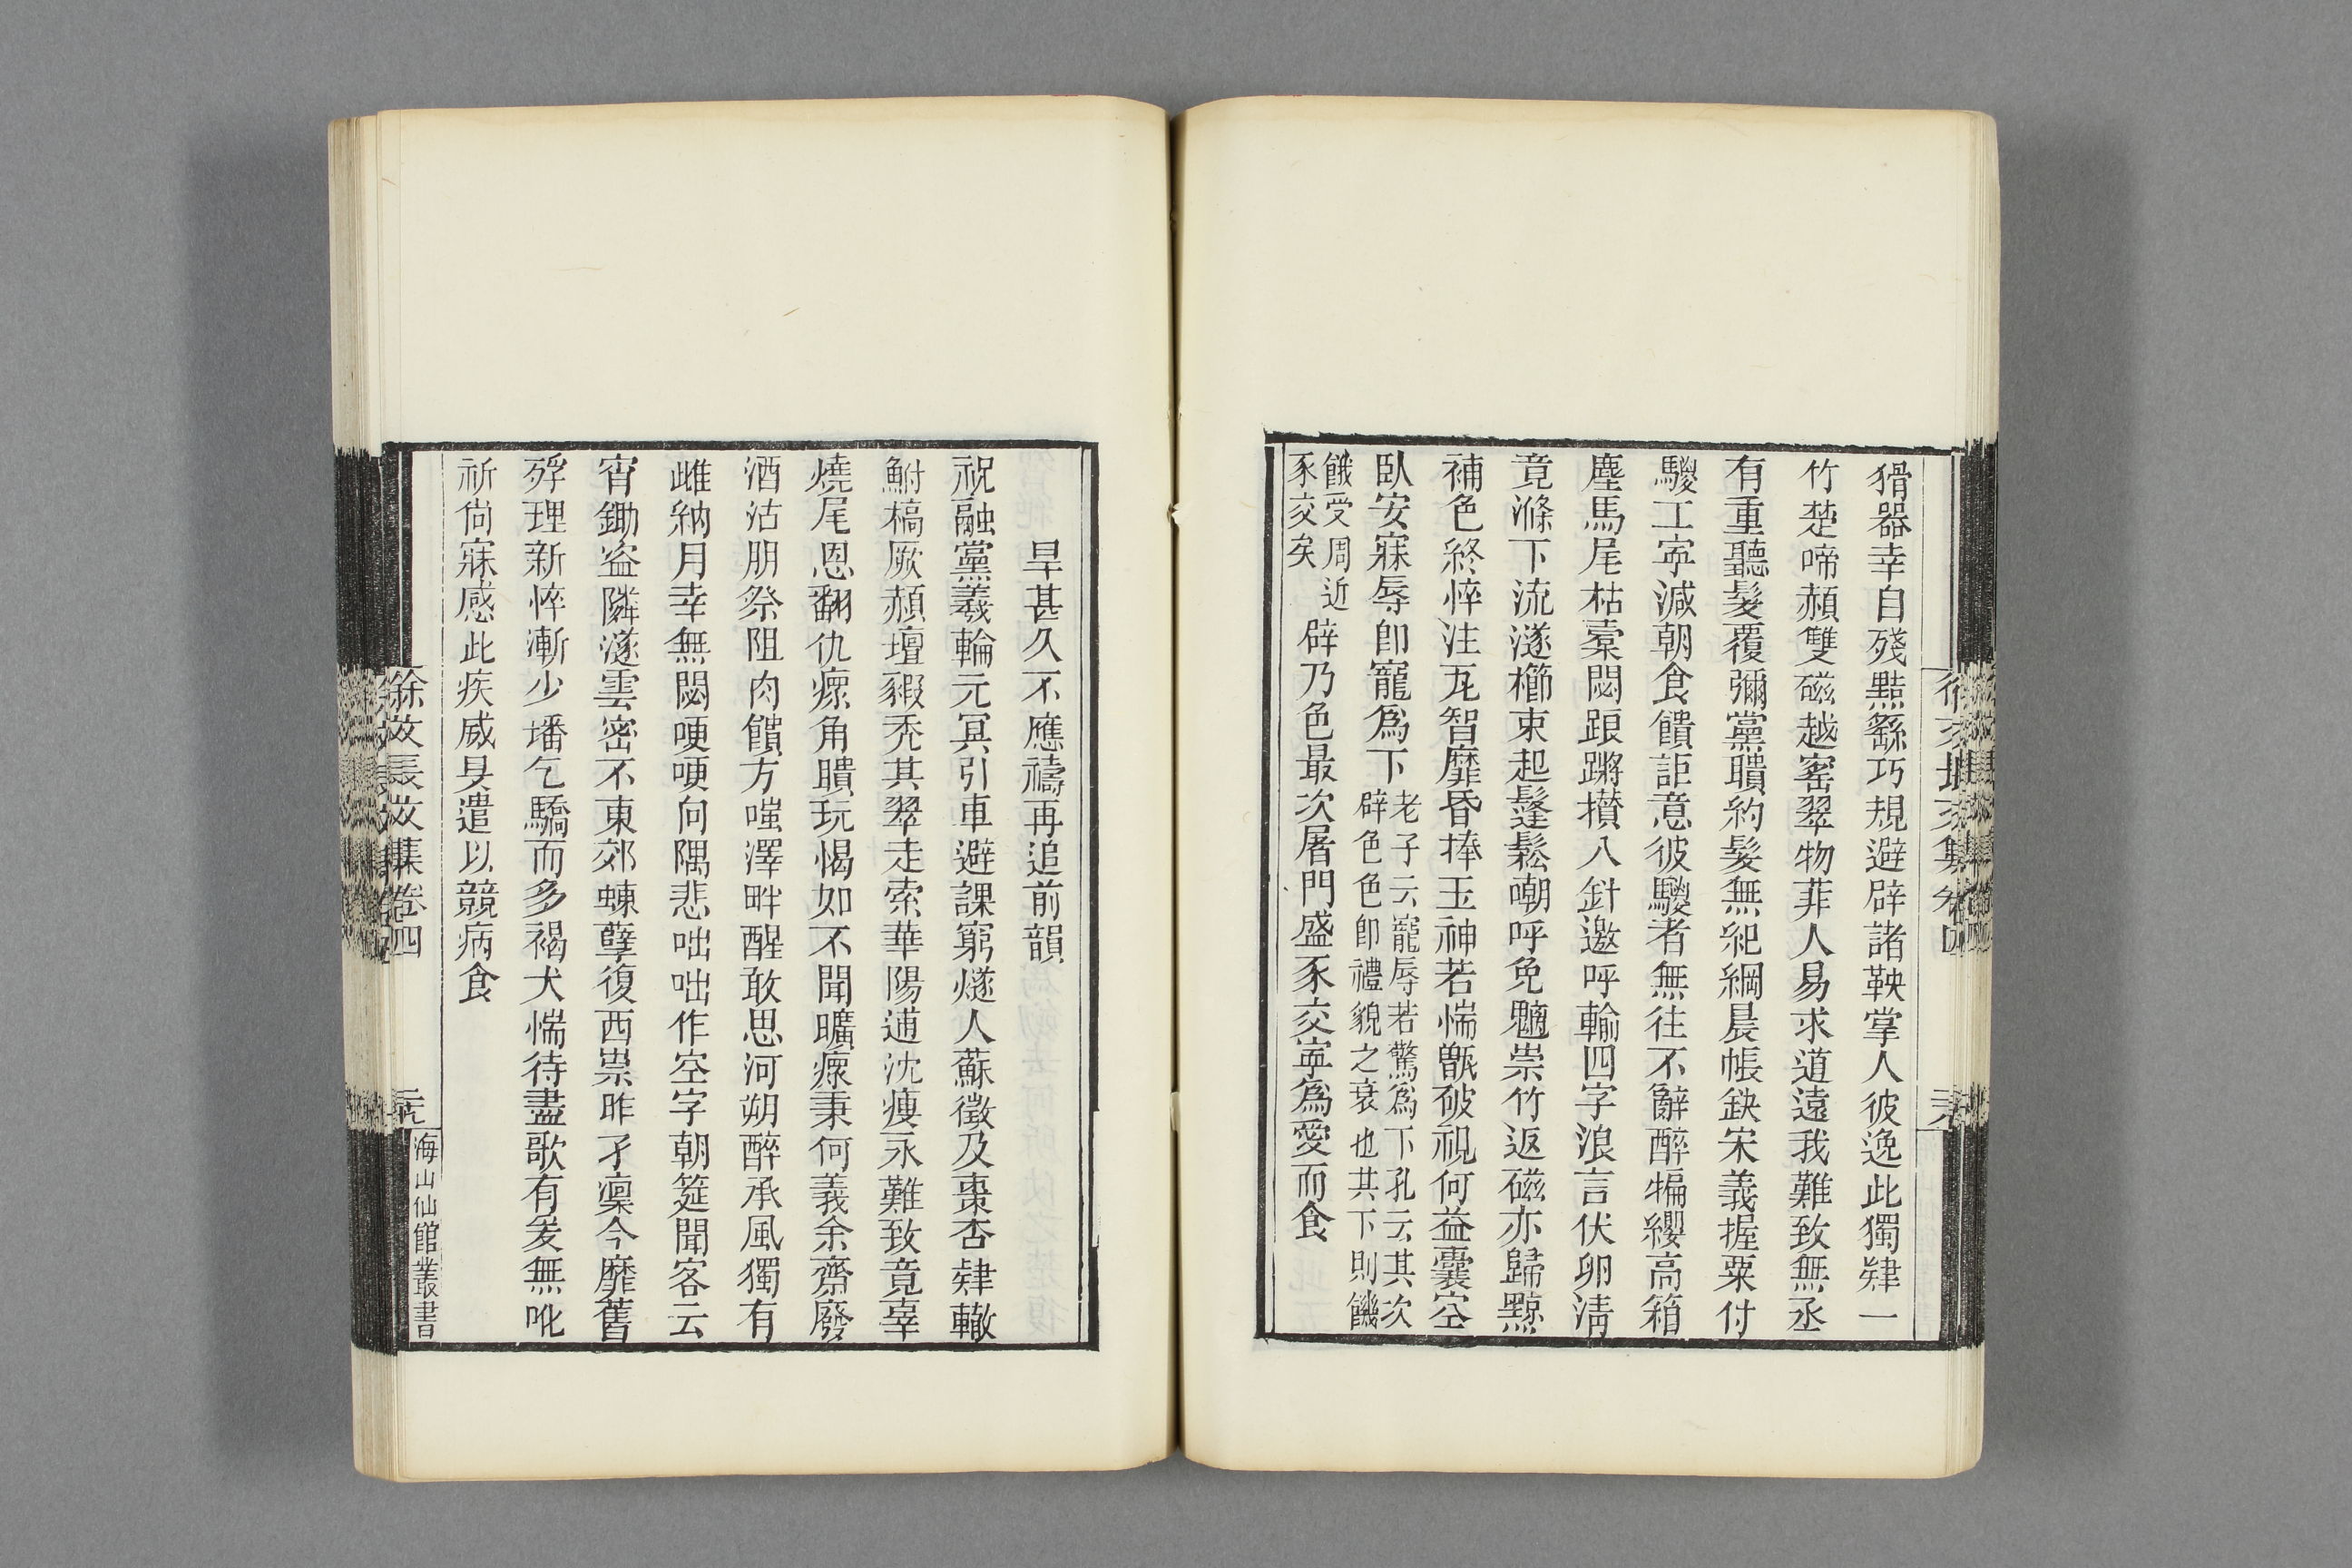 猾器幸自殘黠繇巧規避辟諸鞅掌人彼逸此獨肄一
竹楚啼頳雙磁越窰翠物菲人易求道遠我難致無丞
有重聽髮覆彌黨聵約髮無紀綱晨帳缺宋義握粟付
騣工寜減朝食饋詎意彼騣者無往不辭醉犏纓高箱
塵馬尾枯槖悶踉蹡攅八針邀呼輸四字浪言伏卵淸
竟滌下流邃櫛束起鬔鬆嘲呼免魑祟竹返磁亦歸黥
補色終悴注瓦智靡昏捧玉神若惴甑破視何益囊空
臥安寐辱卽寵爲下
老子云寵辱若驚爲下孔云其次
辟色色卽禮貌之衰也其下則饑
餓受周近
豕交矣
辟乃色最次屠門盛豕交寜爲愛而食
旱甚久不應禱再追前韻
祝融黨羲輪元冥引車避課窮燧人蘇徵及棗杏肄轍
鮒槁厥頳壇豭禿其翠走索華陽逋沈瘦永難致竟辜
燒尾恩翻仇瘭角瞶玩愒如不聞曠瘝秉何義余齋廢
酒沽朋祭阻肉饋方嗤澤畔醒敢思河朔醉承風獨有
雌納月幸無閟哽哽向隅悲咄咄作空字朝筵聞客云
宵鋤盜隣邃雲密不東郊蝀孽復西祟昨孑凜今靡舊
殍理新悴漸少墦乞驕而多褐犬惴待盡歌有爰無吪
祈尙寐感此疾威旻遣以競病食
徐文長文集卷四
海山仙館叢書